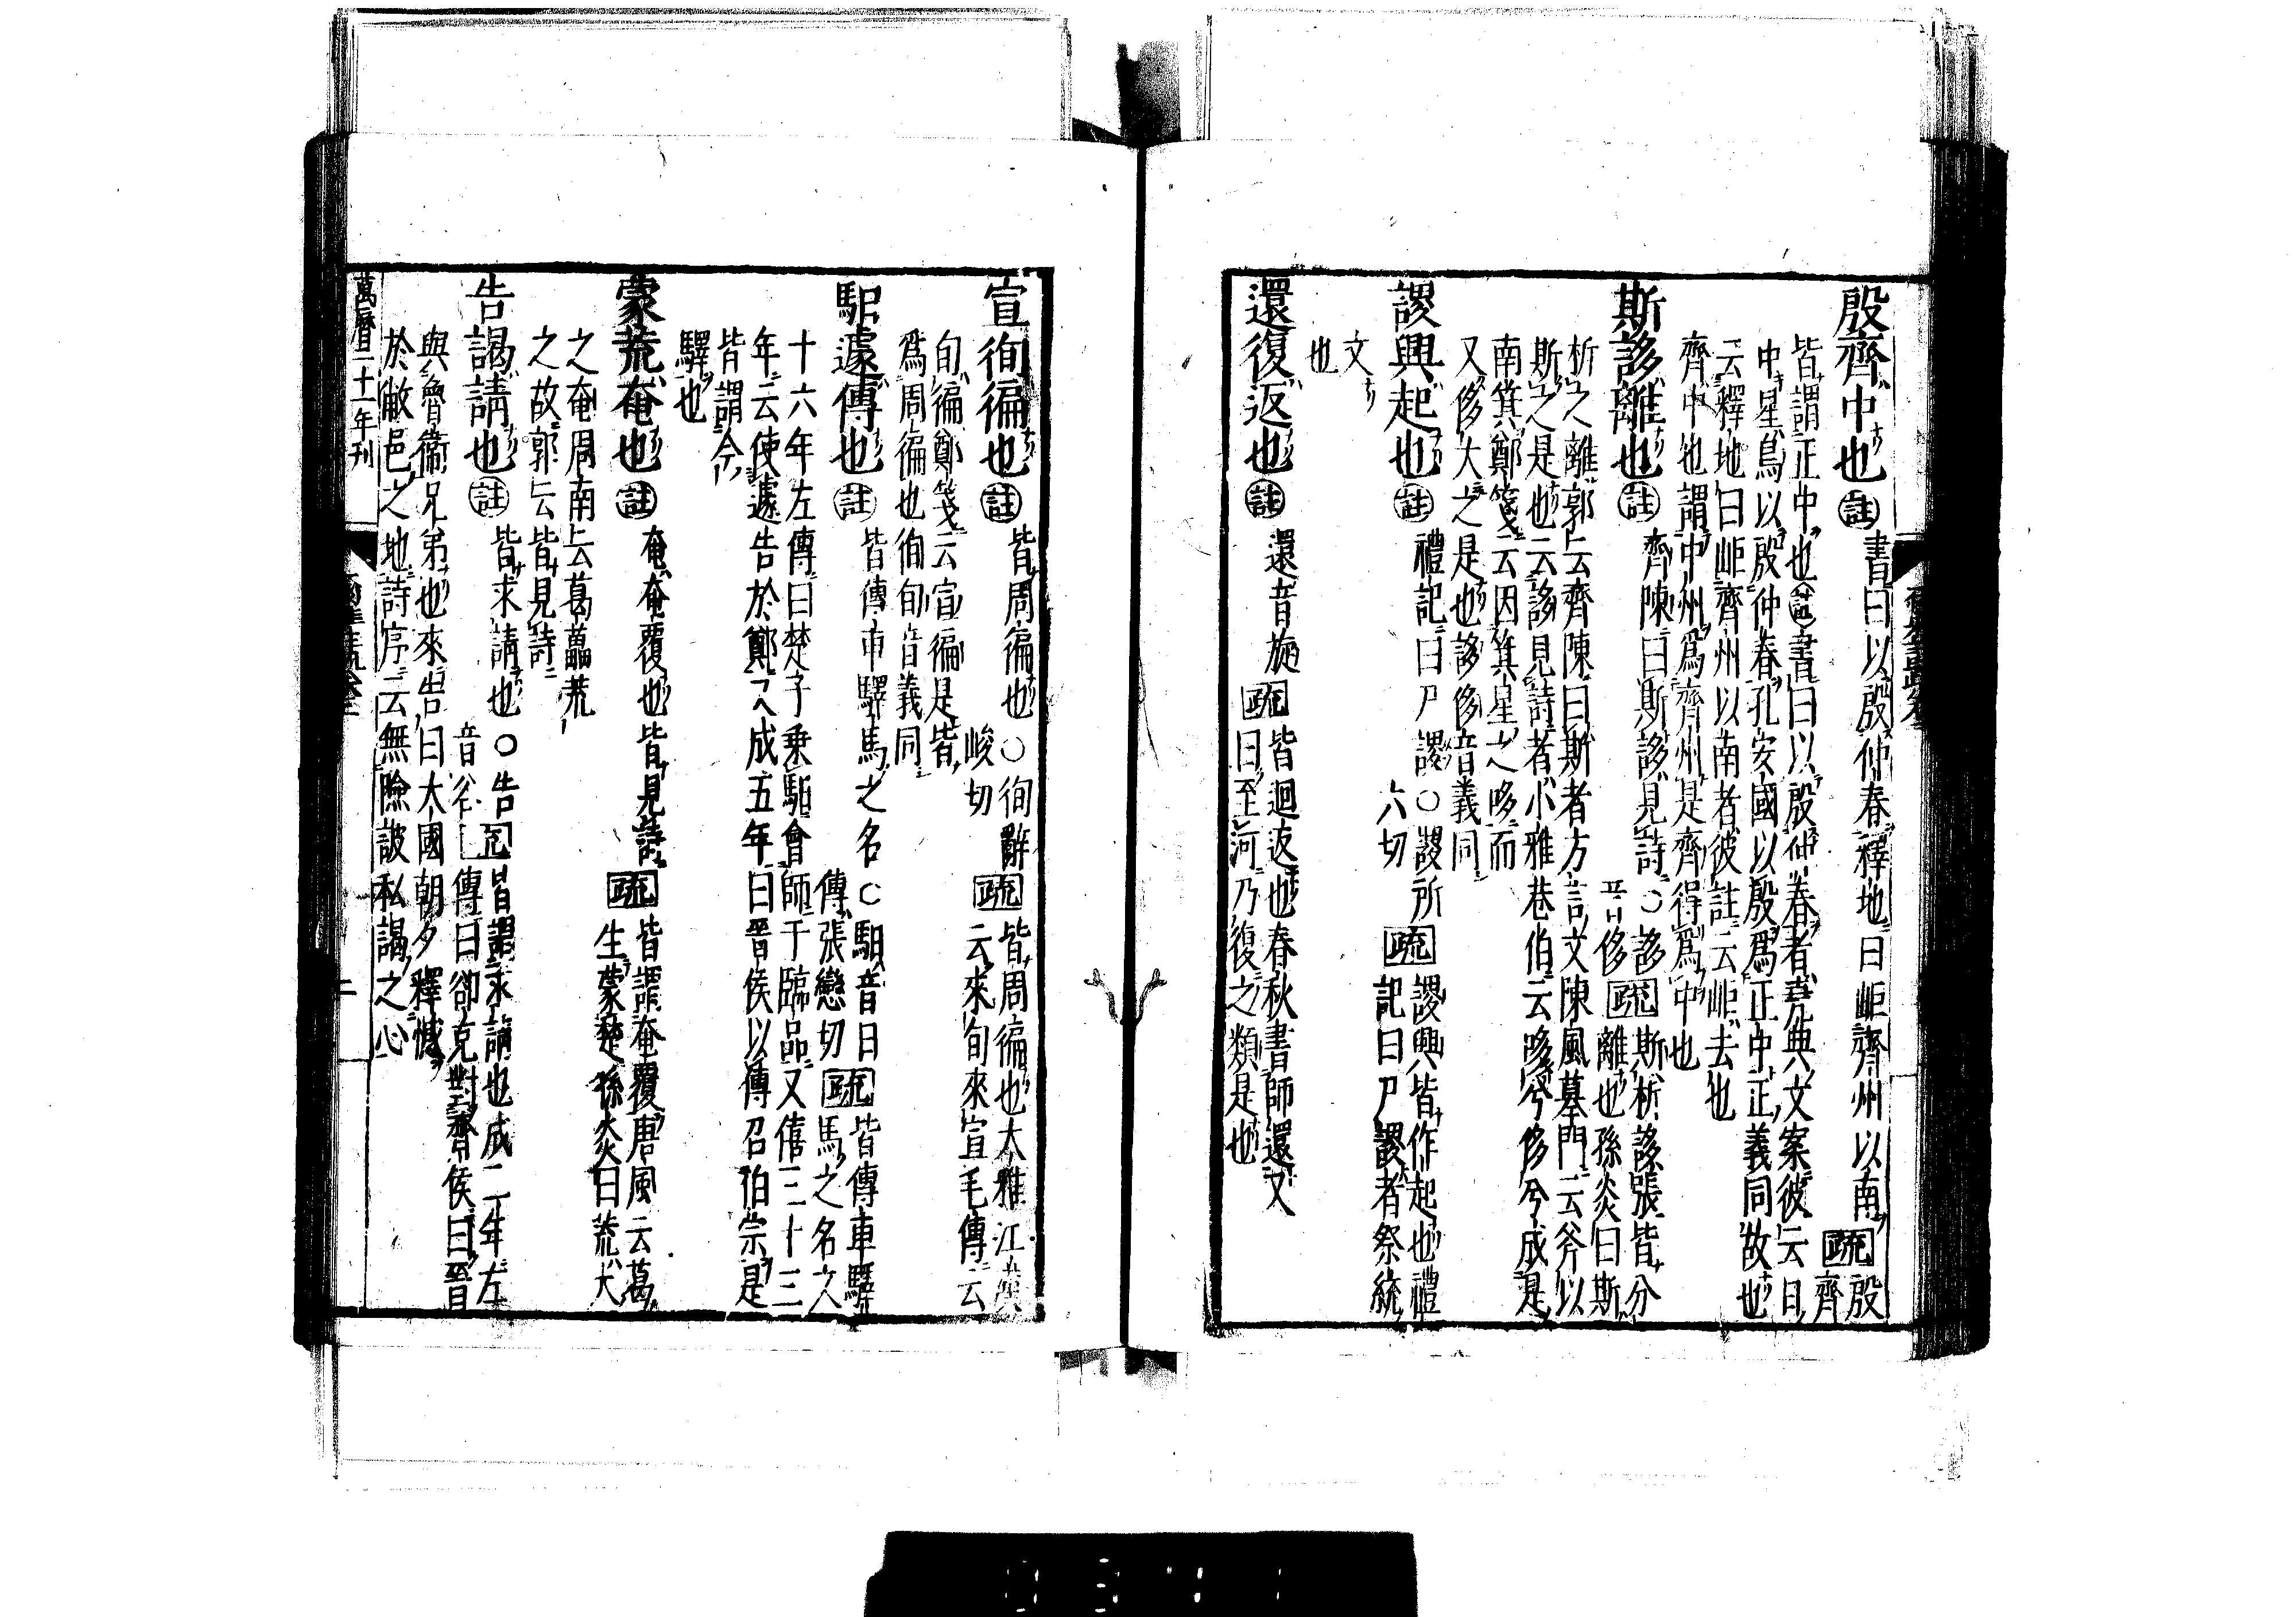 殷齊中也註書曰以殷仲春釋地曰岠齊州以南疏殷齊
皆謂正中也註書曰以殷仲春者堯典文案彼云日
中星鳥以殷仲春孔安國以殷爲正中正義同故也
云釋地曰岠齊州以南者彼註云岠去也
齊中也謂中州爲齊州是齊得爲中也
斯誃離也註齊陳曰斯誃見詩○誃侈疏斯析誃張皆分離也孫炎曰斯
析之離郭云齊陳曰斯者方言文陳風墓門云斧以
斯之是也云誃見詩者小雅巷伯云哆兮侈兮成是
南箕鄭箋云因箕星之哆而
又侈大之是也誃侈音義同
謖興起也註禮記曰尸謖○謖所六切疏謖興皆作起也禮記曰尸謖者祭統
文
也
還復返也註還音旋疏皆迴返也春秋書師還又曰至河乃復之類是也
宣徇徧也註皆周徧也○徇辭峻切疏皆周徧也大雅江漢云來旬來宣毛傳云
旬徧鄭箋云宣徧是皆
爲周徧也徇旬音義同
馹遽傳也註皆傳車驛馬之名○馹音日傳張戀切疏皆傳車驛馬之名文
十六年左傳曰楚子乘馹會師于臨品又僖三十三
年云使遽告於鄭又成五年曰晉侯以傳召伯宗是
皆謂今
驛也
蒙荒奄也註奄奄覆也皆見詩疏皆謂奄覆唐風云葛生蒙楚孫炎曰荒大
之奄周南云葛藟荒
之故郭云皆見詩
告謁請也註皆求請也○告音谷疏皆謂求請也成二年左傳曰卻克對齊侯曰晉
與魯衞兄弟也來告曰大國朝夕釋憾
於敝邑之地詩序云無險詖私謁之心
萬曆二十一年刊
二